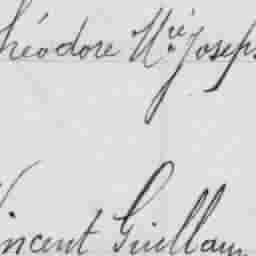 héodore M^rie Joseph
Vincent Guillaum